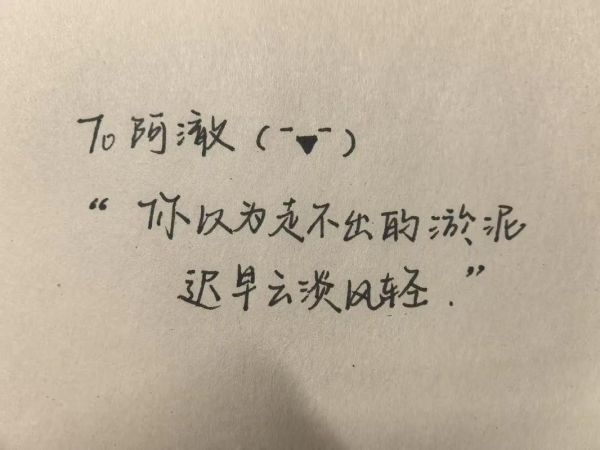 To 阿澈 (-▼-)
“你以为走不出的淤泥
迟早云淡风轻.”